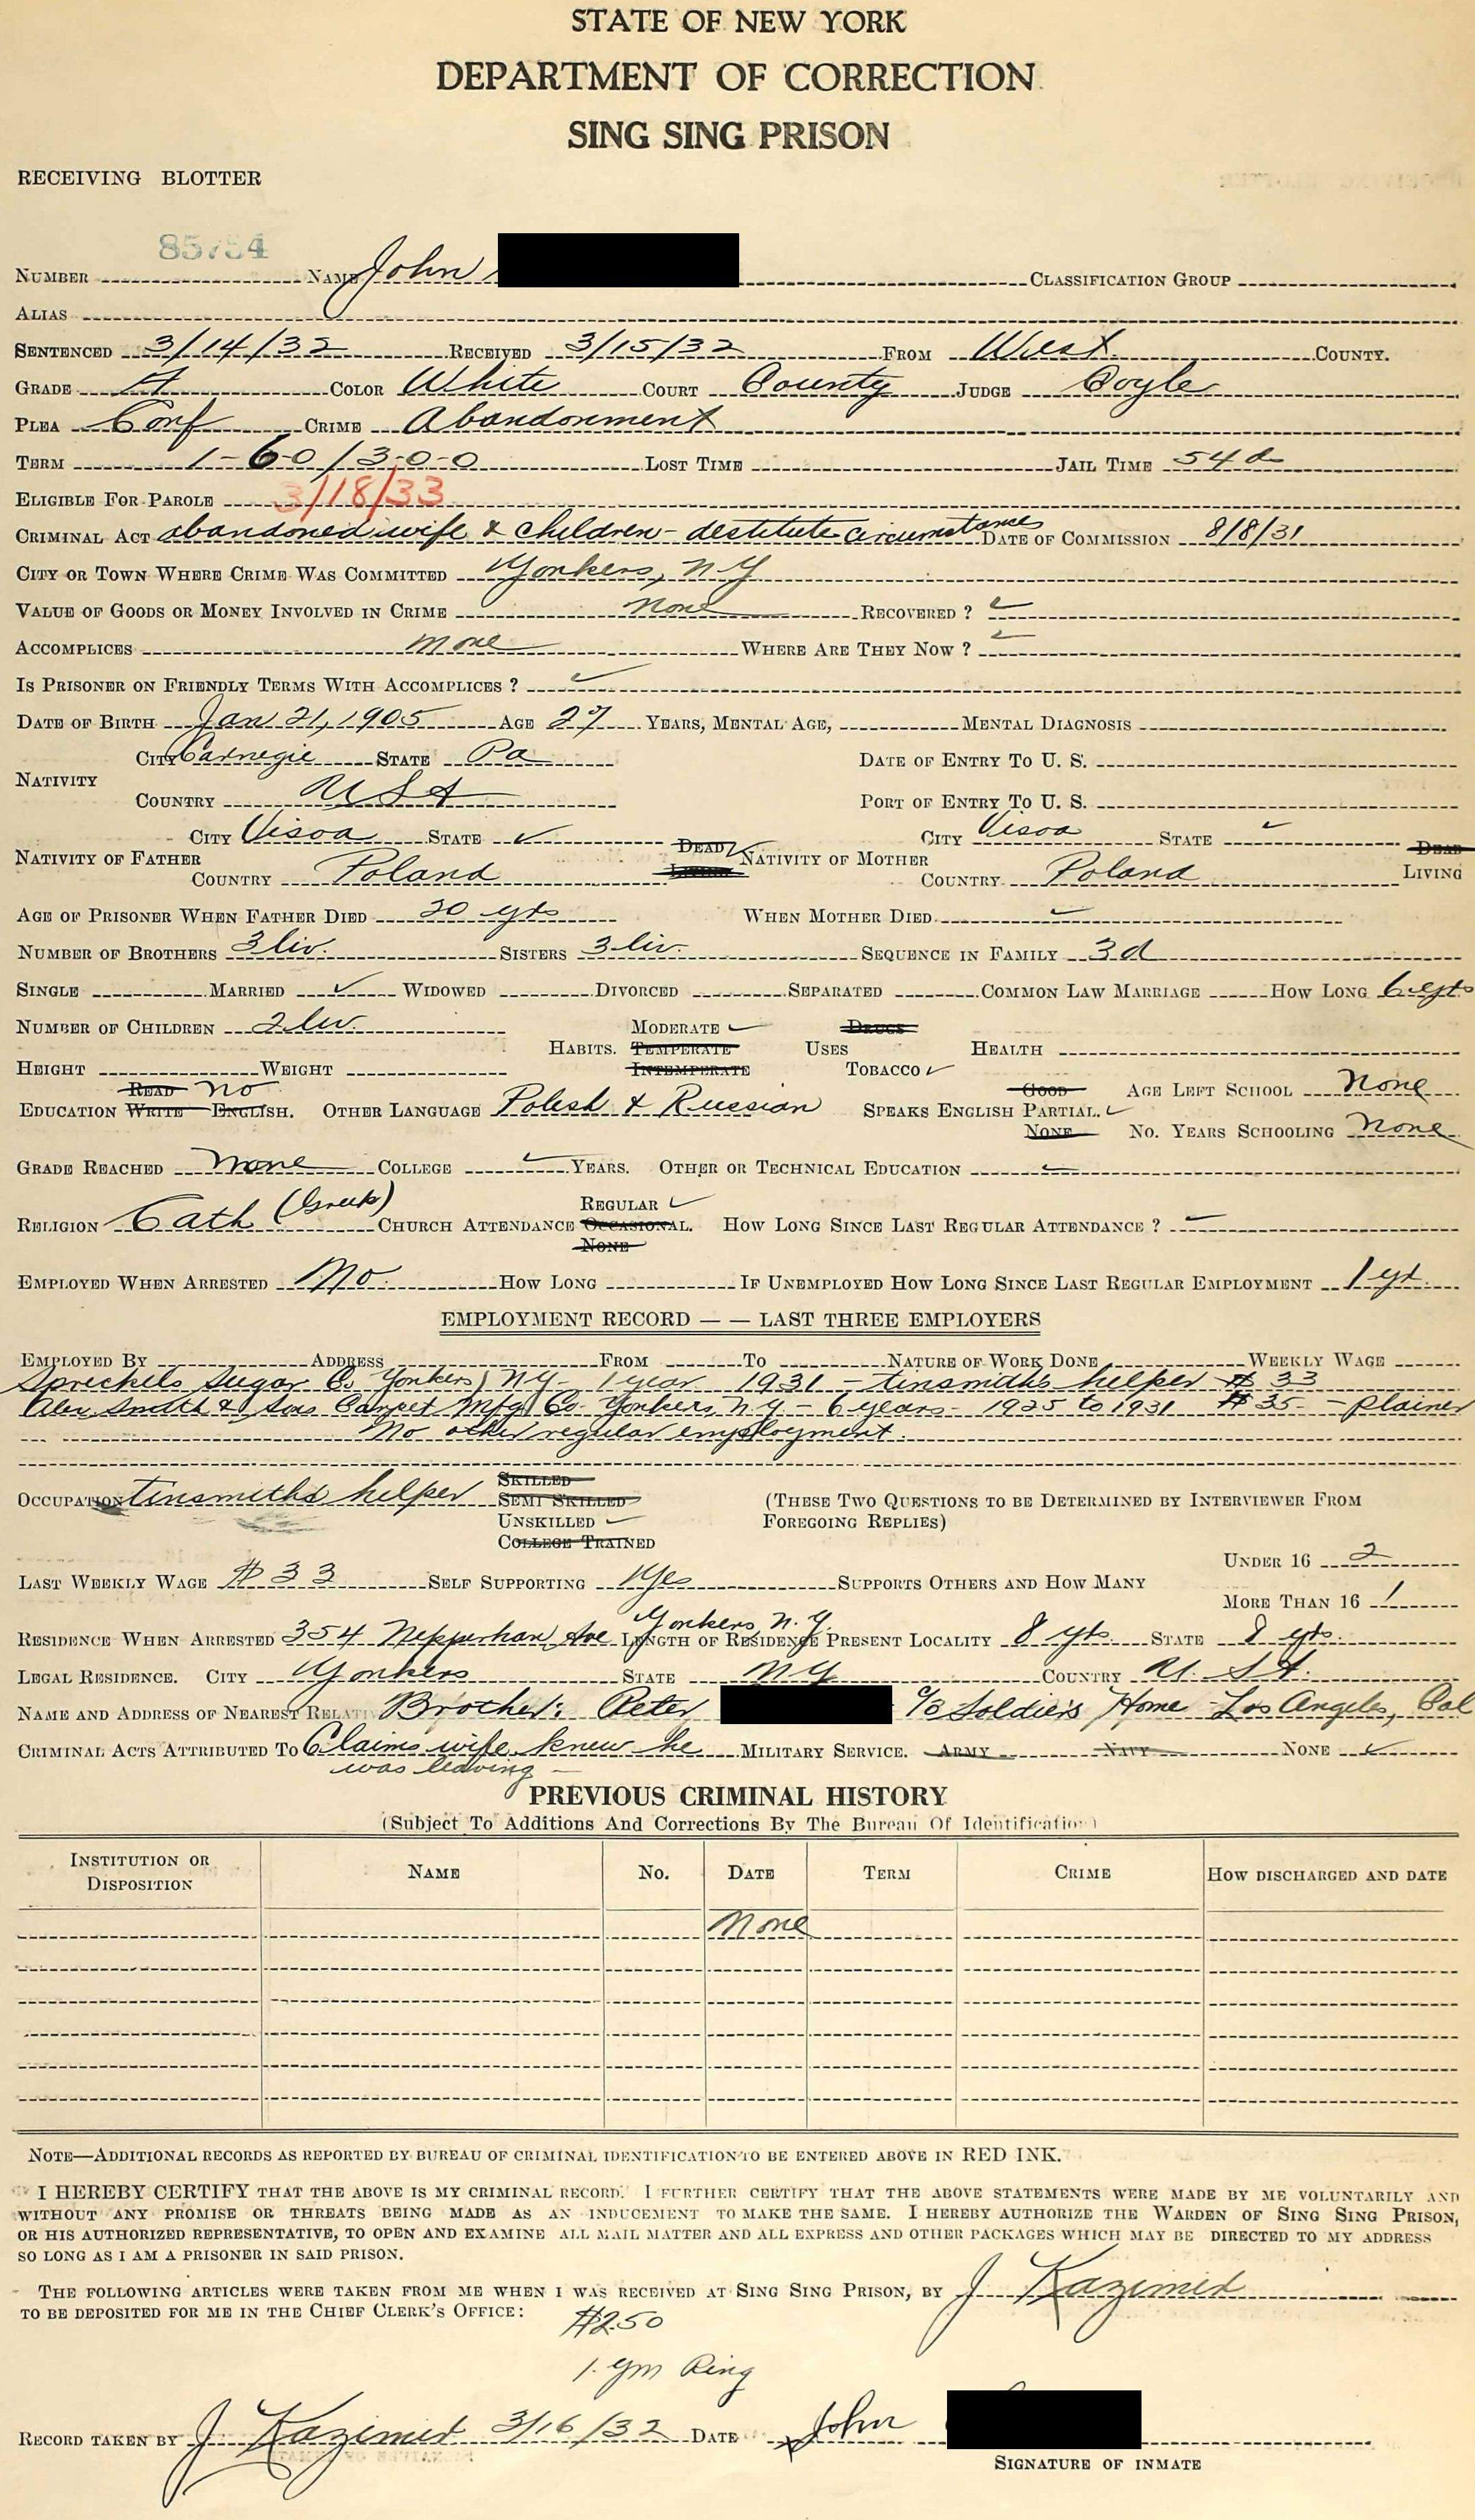 STATE OF NEW YORK
DEPARTMENT OF CORRECTION
SING SING PRISON
RECEIVING BLOTTER
NUMBER 85754 NAME John CLASSIFICATION GROUP
ALIAS
SENTENCED 3/14/32 RECEIVED 3/15/32 FROM West. COUNTY.
GRADE A COLOR White COURT County JUDGE Coyle
PLEA Conf CRIME Abandonment
TERM 1-6-0/3-0-0 LOST TIME JAIL TIME 54 d
ELIGIBLE FOR PAROLE 3/18/33
CRIMINAL ACT abandoned wife & children - destitute circumstances DATE OF COMMISSION 8/8/31
CITY OR TOWN WHERE CRIME WAS COMMITTED Yonkers, NY
VALUE OF GOODS OR MONEY INVOLVED IN CRIME none RECOVERED ? ✓
ACCOMPLICES none WHERE ARE THEY NOW ? ✓
IS PRISONER ON FRIENDLY TERMS WITH ACCOMPLICES ? ✓
DATE OF BIRTH Jan 21, 1905 AGE 27 YEARS, MENTAL AGE, MENTAL DIAGNOSIS
CITY Carnegie STATE Pa DATE OF ENTRY TO U. S.
NATIVITY
COUNTRY USA PORT OF ENTRY TO U. S.
CITY Visoa STATE ✓ DEAD ✓ CITY Visoa STATE ✓ DEAD
NATIVITY OF FATHER NATIVITY OF MOTHER
COUNTRY Poland LIVING COUNTRY Poland LIVING
AGE OF PRISONER WHEN FATHER DIED 20 yrs WHEN MOTHER DIED ✓
NUMBER OF BROTHERS 3 liv. SISTERS 3 liv. SEQUENCE IN FAMILY 3d
SINGLE MARRIED ✓ WIDOWED DIVORCED SEPARATED COMMON LAW MARRIAGE HOW LONG 6 yrs
NUMBER OF CHILDREN 2 liv. MODERATE ✓ DRUGS
HABITS. TEMPERATE USES HEALTH
HEIGHT WEIGHT INTEMPERATE TOBACCO ✓
READ no GOOD AGE LEFT SCHOOL none
EDUCATION WRITE ENGLISH. OTHER LANGUAGE Polish & Russian SPEAKS ENGLISH PARTIAL. ✓
NONE NO. YEARS SCHOOLING none
GRADE REACHED none COLLEGE ✓ YEARS. OTHER OR TECHNICAL EDUCATION ✓
REGULAR ✓
RELIGION Cath (Greek) CHURCH ATTENDANCE OCCASIONAL. HOW LONG SINCE LAST REGULAR ATTENDANCE ? ✓
NONE
EMPLOYED WHEN ARRESTED No. HOW LONG IF UNEMPLOYED HOW LONG SINCE LAST REGULAR EMPLOYMENT 1 yr.
EMPLOYMENT RECORD — — LAST THREE EMPLOYERS
EMPLOYED BY ADDRESS FROM TO NATURE OF WORK DONE WEEKLY WAGE
Spreckels Sugar Co. Yonkers, NY - 1 year 1931 - tinsmith's helper $33
Alex Smith & Sons Carpet Mfg. Co. Yonkers, N.Y. - 6 years - 1925 to 1931 $35- - plainer
No other regular employment.
SKILLED
OCCUPATION tinsmith's helper SEMI SKILLED (THESE TWO QUESTIONS TO BE DETERMINED BY INTERVIEWER FROM
UNSKILLED ✓ FOREGOING REPLIES)
COLLEGE TRAINED
UNDER 16 2
LAST WEEKLY WAGE $33 SELF SUPPORTING Yes SUPPORTS OTHERS AND HOW MANY
MORE THAN 16 1
RESIDENCE WHEN ARRESTED 354 Nepperhan Ave Yonkers, N.Y. LENGTH OF RESIDENCE PRESENT LOCALITY 8 yrs. STATE 8 yrs.
LEGAL RESIDENCE. CITY Yonkers STATE NY COUNTRY U. S. A.
NAME AND ADDRESS OF NEAREST RELATI Brother: Peter c/o Soldier's Home - Los Angeles, Cal
CRIMINAL ACTS ATTRIBUTED TO Claims wife knew he MILITARY SERVICE. ARMY NAVY NONE ✓
was leaving -
PREVIOUS CRIMINAL HISTORY
(Subject To Additions And Corrections By The Bureau Of Identification)
INSTITUTION OR DISPOSITION NAME NO. DATE TERM CRIME HOW DISCHARGED AND DATE
None
NOTE—ADDITIONAL RECORDS AS REPORTED BY BUREAU OF CRIMINAL IDENTIFICATION TO BE ENTERED ABOVE IN RED INK.
I HEREBY CERTIFY THAT THE ABOVE IS MY CRIMINAL RECORD. I FURTHER CERTIFY THAT THE ABOVE STATEMENTS WERE MADE BY ME VOLUNTARILY AND
WITHOUT ANY PROMISE OR THREATS BEING MADE AS AN INDUCEMENT TO MAKE THE SAME. I HEREBY AUTHORIZE THE WARDEN OF SING SING PRISON,
OR HIS AUTHORIZED REPRESENTATIVE, TO OPEN AND EXAMINE ALL MAIL MATTER AND ALL EXPRESS AND OTHER PACKAGES WHICH MAY BE DIRECTED TO MY ADDRESS
SO LONG AS I AM A PRISONER IN SAID PRISON.
THE FOLLOWING ARTICLES WERE TAKEN FROM ME WHEN I WAS RECEIVED AT SING SING PRISON, BY J. Kazimir
TO BE DEPOSITED FOR ME IN THE CHIEF CLERK'S OFFICE:
$2.50
1 ym Ring
RECORD TAKEN BY J. Kazimir 3/16/32 DATE John
SIGNATURE OF INMATE